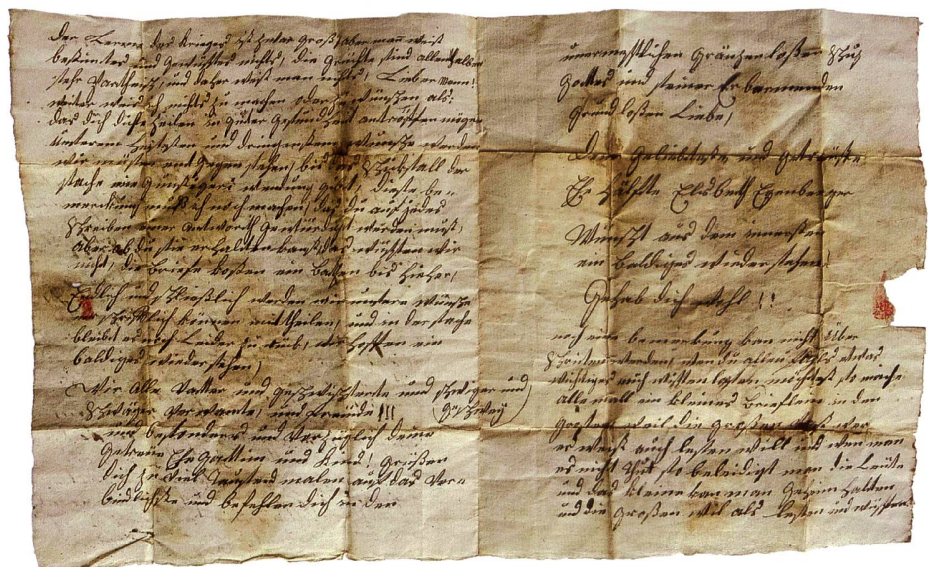 Der Lerm des Krieges ist zwar Groß, aber mann weist
bestimtes und gewisses nichts, die Gerichte sind allenthalben
sehr Partheisch, und daher weist man nichts, Lieber Mann!
weiter weis ich nichts zu machen oder zu wünschen als:
das dich diese Zeilen in guter Gesundheit antreffen mögen
unserem heisesten und dringensten wunsche werden
wir müssen entgegen sehen, bis das Schicksall der
sache eine günstigere wendung gibt, diese be-
merckung mus ich noch machen, das du auf jedes
Schreiben einer Antworth gewürdigt werden must,
aber ob du sie erhaldten hast, das wussten wir
nicht, die briefe kosten ein batzen bis hieher,
Endlich und schlieslich werden wir unsere wünsche
können mittheilen, und in der sache
bleibt es noch Leider zu trüb, wir hoffen ein
baldiges wiedersehen,
Wir Alle Vatter und geschwisterte und schweger und
Schweger Verwante, und Freunde!!! (Geschwey)
und besonders und vorzüglich deine
getreue Ehe Gattin und Kind! grüßen
dich zu viel Tausend malen auf das Ver-
bindlichste und befehlen dich in den
unermesslichen gränzenlosen Schuz
Gottes und seiner Erbarmenden
Grundlosen Liebe,
Deine Geliebteste und Getreuste
Ehe Hälfte Elisbetha Egenberger
Wünscht aus dem innersten
ein baldiges wiedersehen!
Gehab dich wohl!!
noch eine bemerkung kan nicht über
Schriten werden, wen du alein etwas
wichtiges auch wissen lasen möchtest, so mache
alle mall ein kleines Brieflein in den
grosen, weil die grosen wer
er weist auch lesen will und wen man
es nicht thut so beleidigt man die Leüte
und das kleine kan man geheim halten
und die grosen wil als lesen und wissen